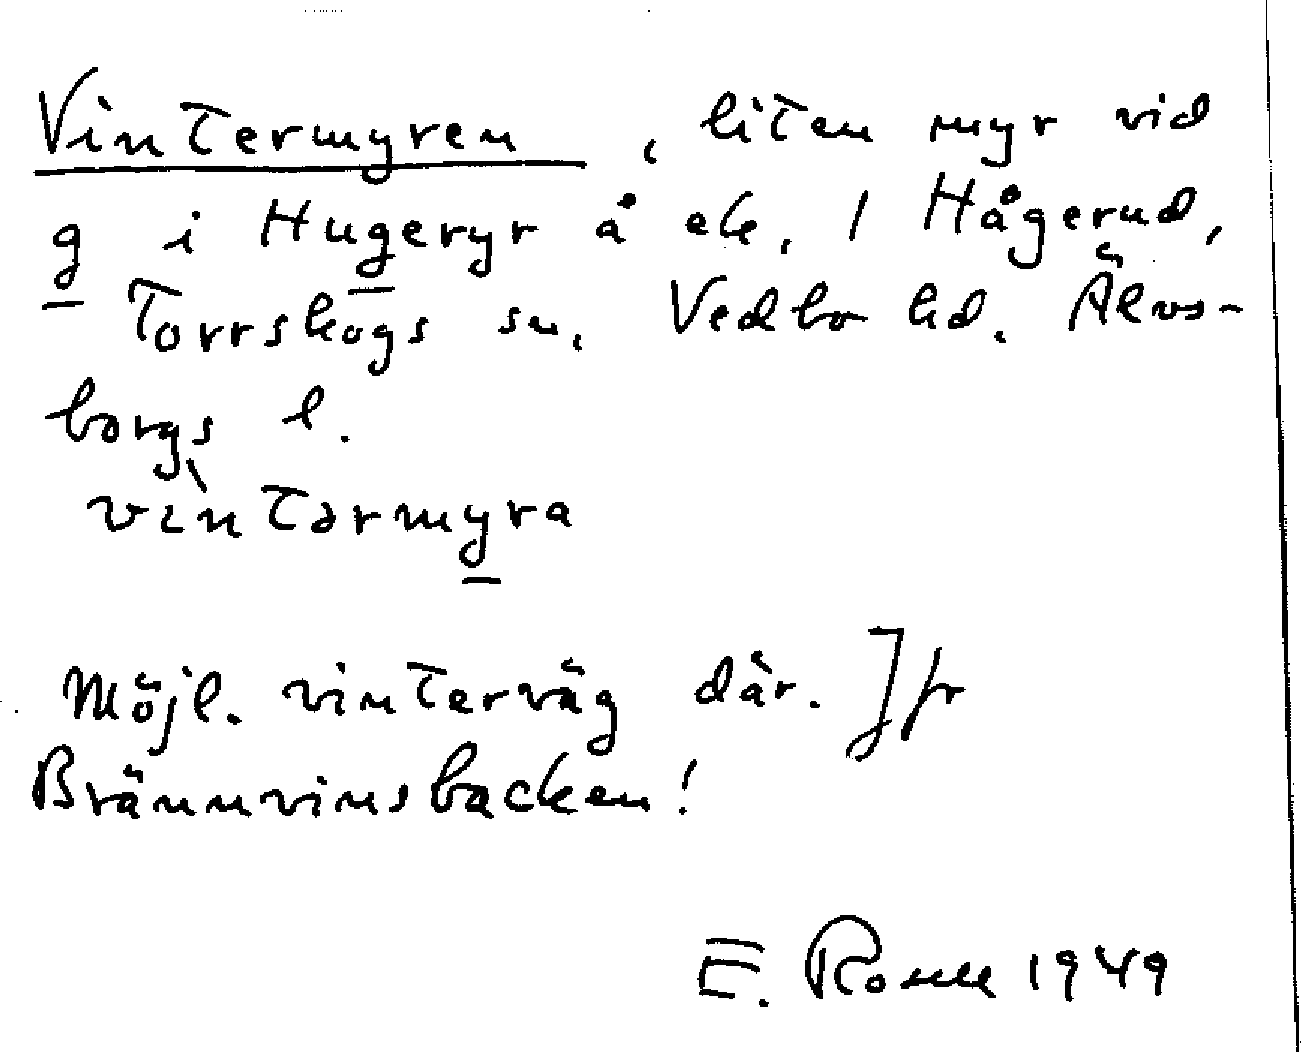 Vintermyren, liten myr vid
g i Hugeryr å ek. 1 Hågerud,
Torrskogs sn, Vedbo hd. Älvs-
borgs l.
vìntərmyra
Möjl. vinterväg där. Jfr
Brännvinsbacken!
E. 1949